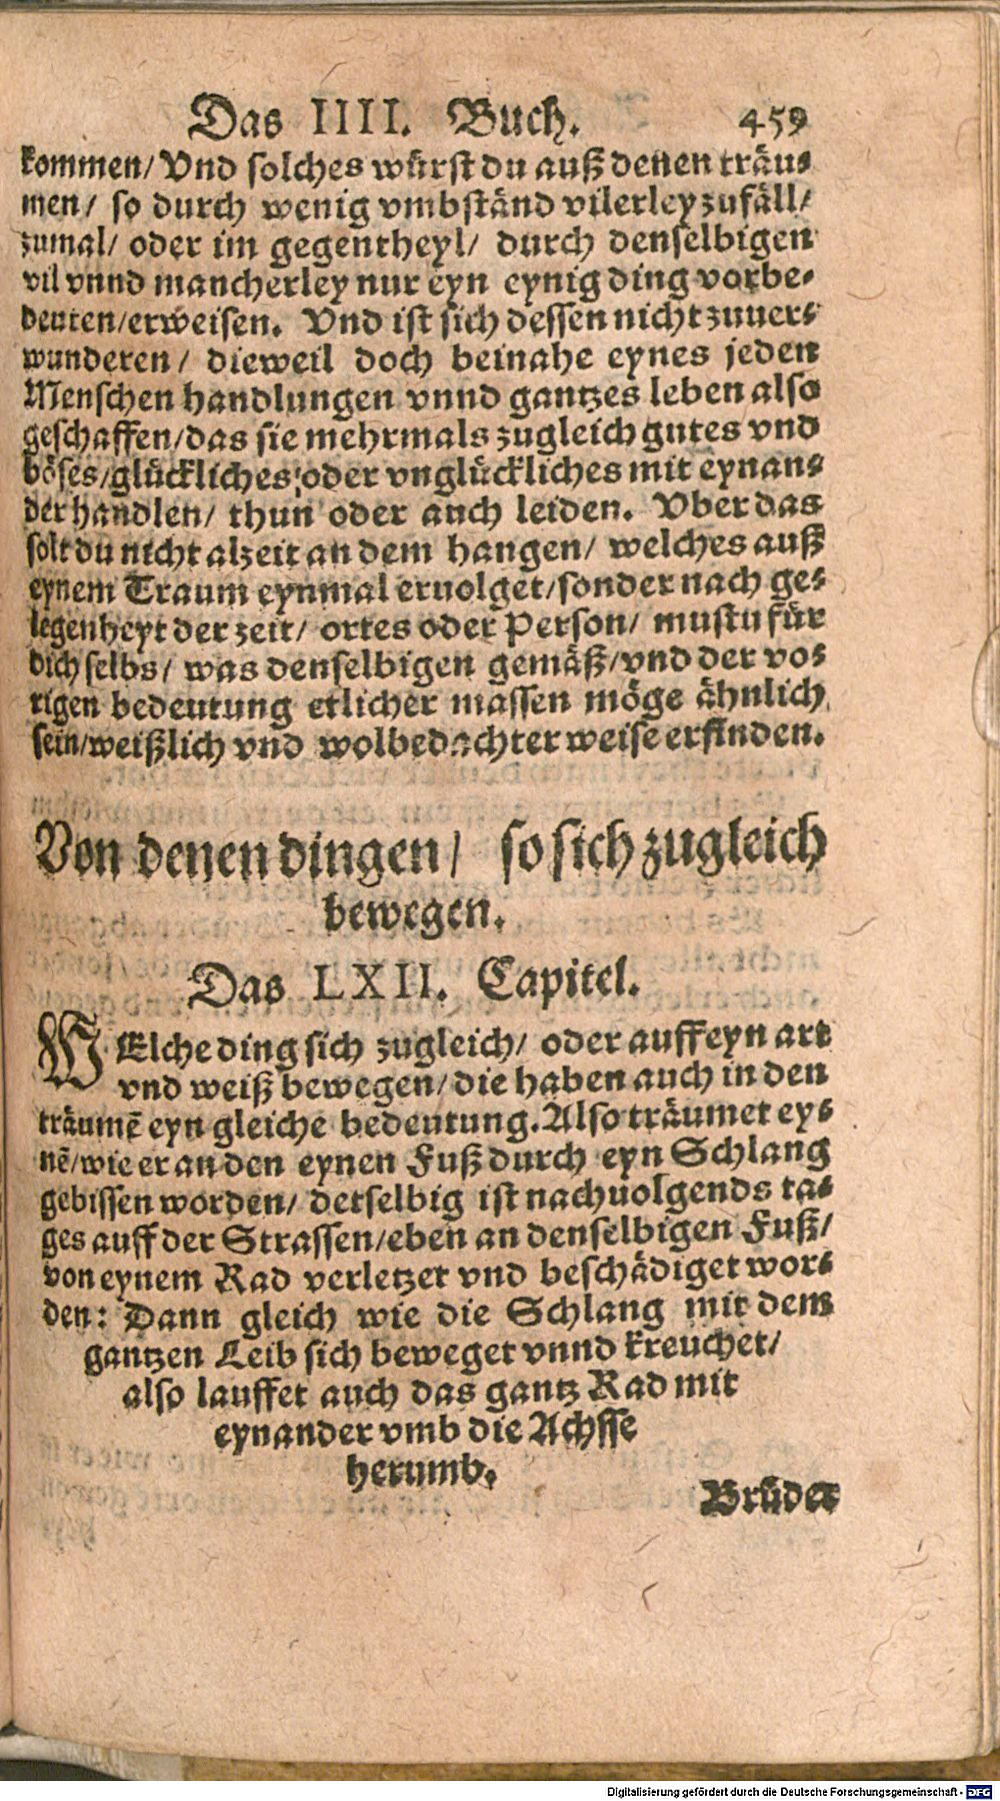 Das IIII. Buch. 459
kommen/ Vnd solches würst du auß denen träu⸗
men/ so durch wenig vmbständ vilerley zufäll/
zumal/ oder im gegentheyl/ durch denselbigen
vil vnnd mancherley nur eyn eynig ding vorbe⸗
deuten/erweisen. Vnd ist sich dessen nicht zuuer⸗
wunderen/ dieweil doch beinahe eynes jeden
Menschen handlungen vnnd gantzes leben also
geschaffen/das sie mehrmals zugleich gutes vnd
böses/glückliches oder vnglückliches mit eynan⸗
der handlen/ thun oder auch leiden. Vber das
solt du nicht alzeit an dem hangen/ welches auß
eynem Traum eynmal eruolget/sonder nach ge⸗
legenheyt der zeit/ ortes oder Person/ mustu für
dich selbs/ was denselbigen gemäß/vnd der vo⸗
rigen bedeutung etlicher massen möge ähnlich
sein/weißlich vnd wolbedachter weise erfinden.
Von denen dingen/ so sich zugleich
bewegen.
Das LXII. Capitel.
WElche ding sich zugleich/ oder auff eyn art
vnd weiß bewegen/die haben auch in den
träumẽ eyn gleiche bedeutung. Also träumet ey⸗
nẽ/wie er an den eynen Fuß durch eyn Schlang
gebissen worden/ derselbig ist nachuolgends ta⸗
ges auff der Strassen/eben an denselbigen Fuß/
von eynem Rad verletzet vnd beschädiget wor⸗
den: Dann gleich wie die Schlang mit dem
gantzen Leib sich beweget vnnd kreuchet/
also lauffet auch das gantz Rad mit
eynander vmb die Achsse
herumb.
Brüder
Digitalisierung gefördert durch die Deutsche Forschungsgemeinschaft - DFG